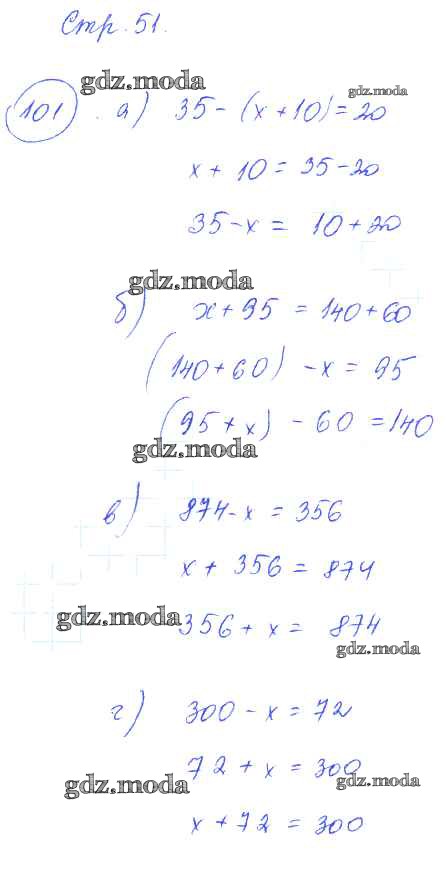 Стр. 51.
gdz.moda gdz.moda
101 . а) 35 - (x + 10) = 20
x + 10 = 35 - 20
35 - x = 10 + 20
gdz.moda
б) x + 95 = 140 + 60
(140 + 60) - x = 95
(95 + x) - 60 = 140
gdz.moda
в) 874 - x = 356
x + 356 = 874
gdz.moda 356 + x = 874
gdz.moda
г) 300 - x = 72
72 + x = 300
gdz.moda gdz.moda
x + 72 = 300